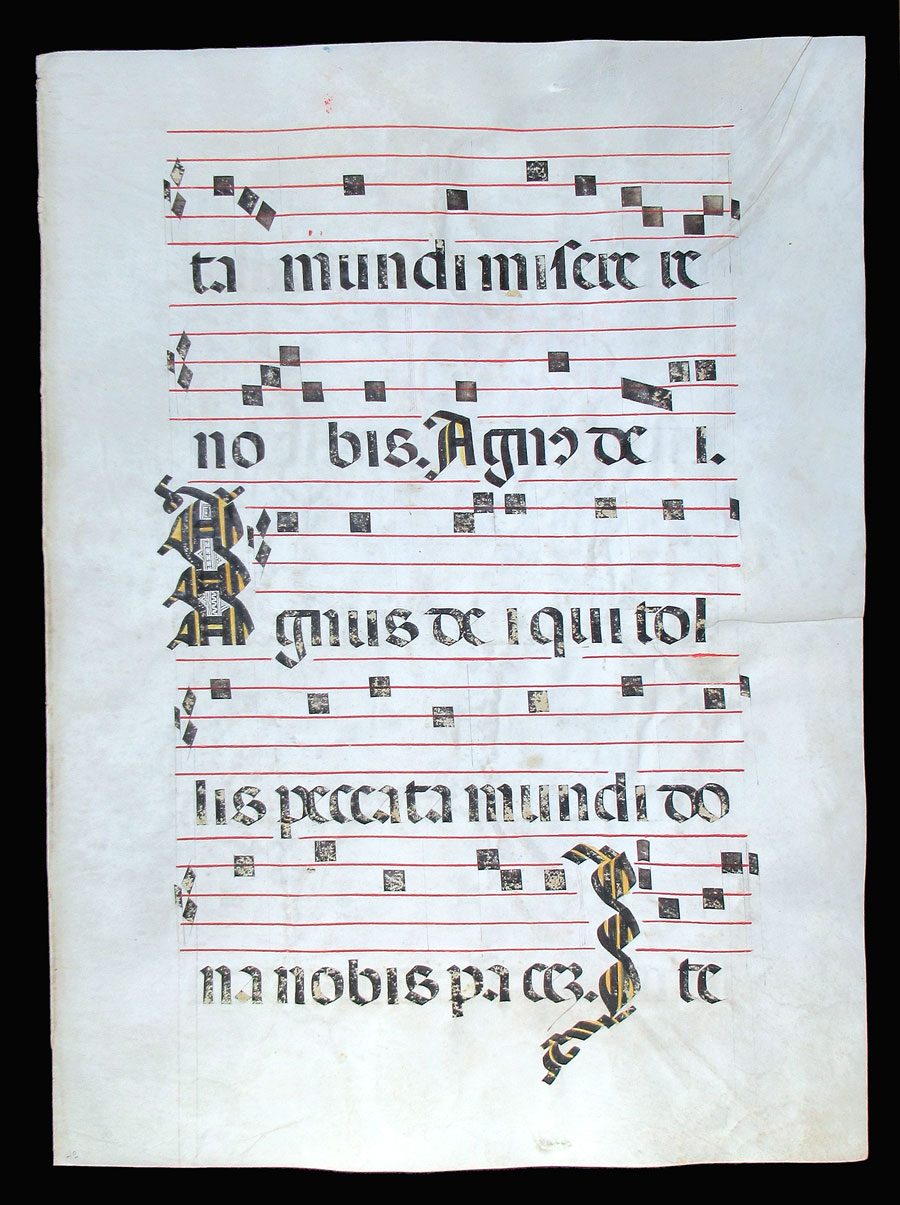 ta mundi miserere re
no bis. Agnꝰ de i.
Agnus de i qui tol
lis peccata mundi do
na nobis pacẽ. I te